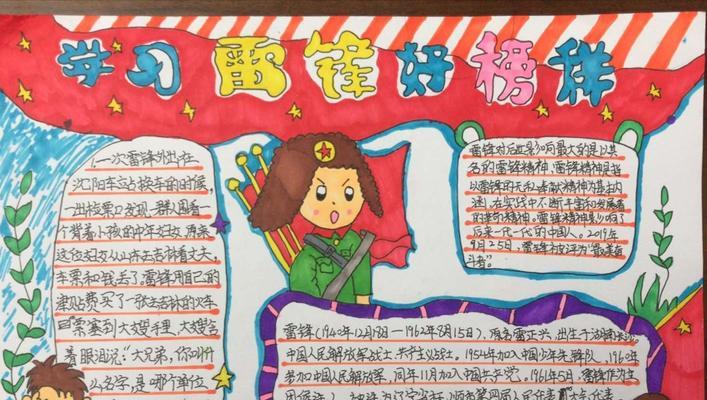 学习雷锋好榜样
一次雷锋外出在
沈阳车站换车的时候,
一出检票口发现一群人围看一
个背着小孩的中年妇女,原来
这位妇女从山东去吉林看丈夫,
车票和钱丢了。雷锋用自己的
津贴费买了一张去吉林的火车
票塞到大嫂手里,大嫂含
着眼泪说:“大兄弟,你叫什
么名字,是哪个单位
雷锋对后世影响最大的是以其
名的雷锋精神,雷锋精神是指
以雷锋的无私奉献精神为基本内
涵,在实践中不断丰富和发展着
的革命精神。雷锋精神影响了
后来一代一代的中国人。2019年
9月25日,雷锋被评为“最美奋
斗者”。
雷锋(1940年12月18日—1962年8月15日),原名雷正兴,出生于湖南长沙,
中国人民解放军战士,共产主义战士。1954年加入中国少年先锋队,1960年
参加中国人民解放军,同年11月加入中国共产党。1961年5月,雷锋作为